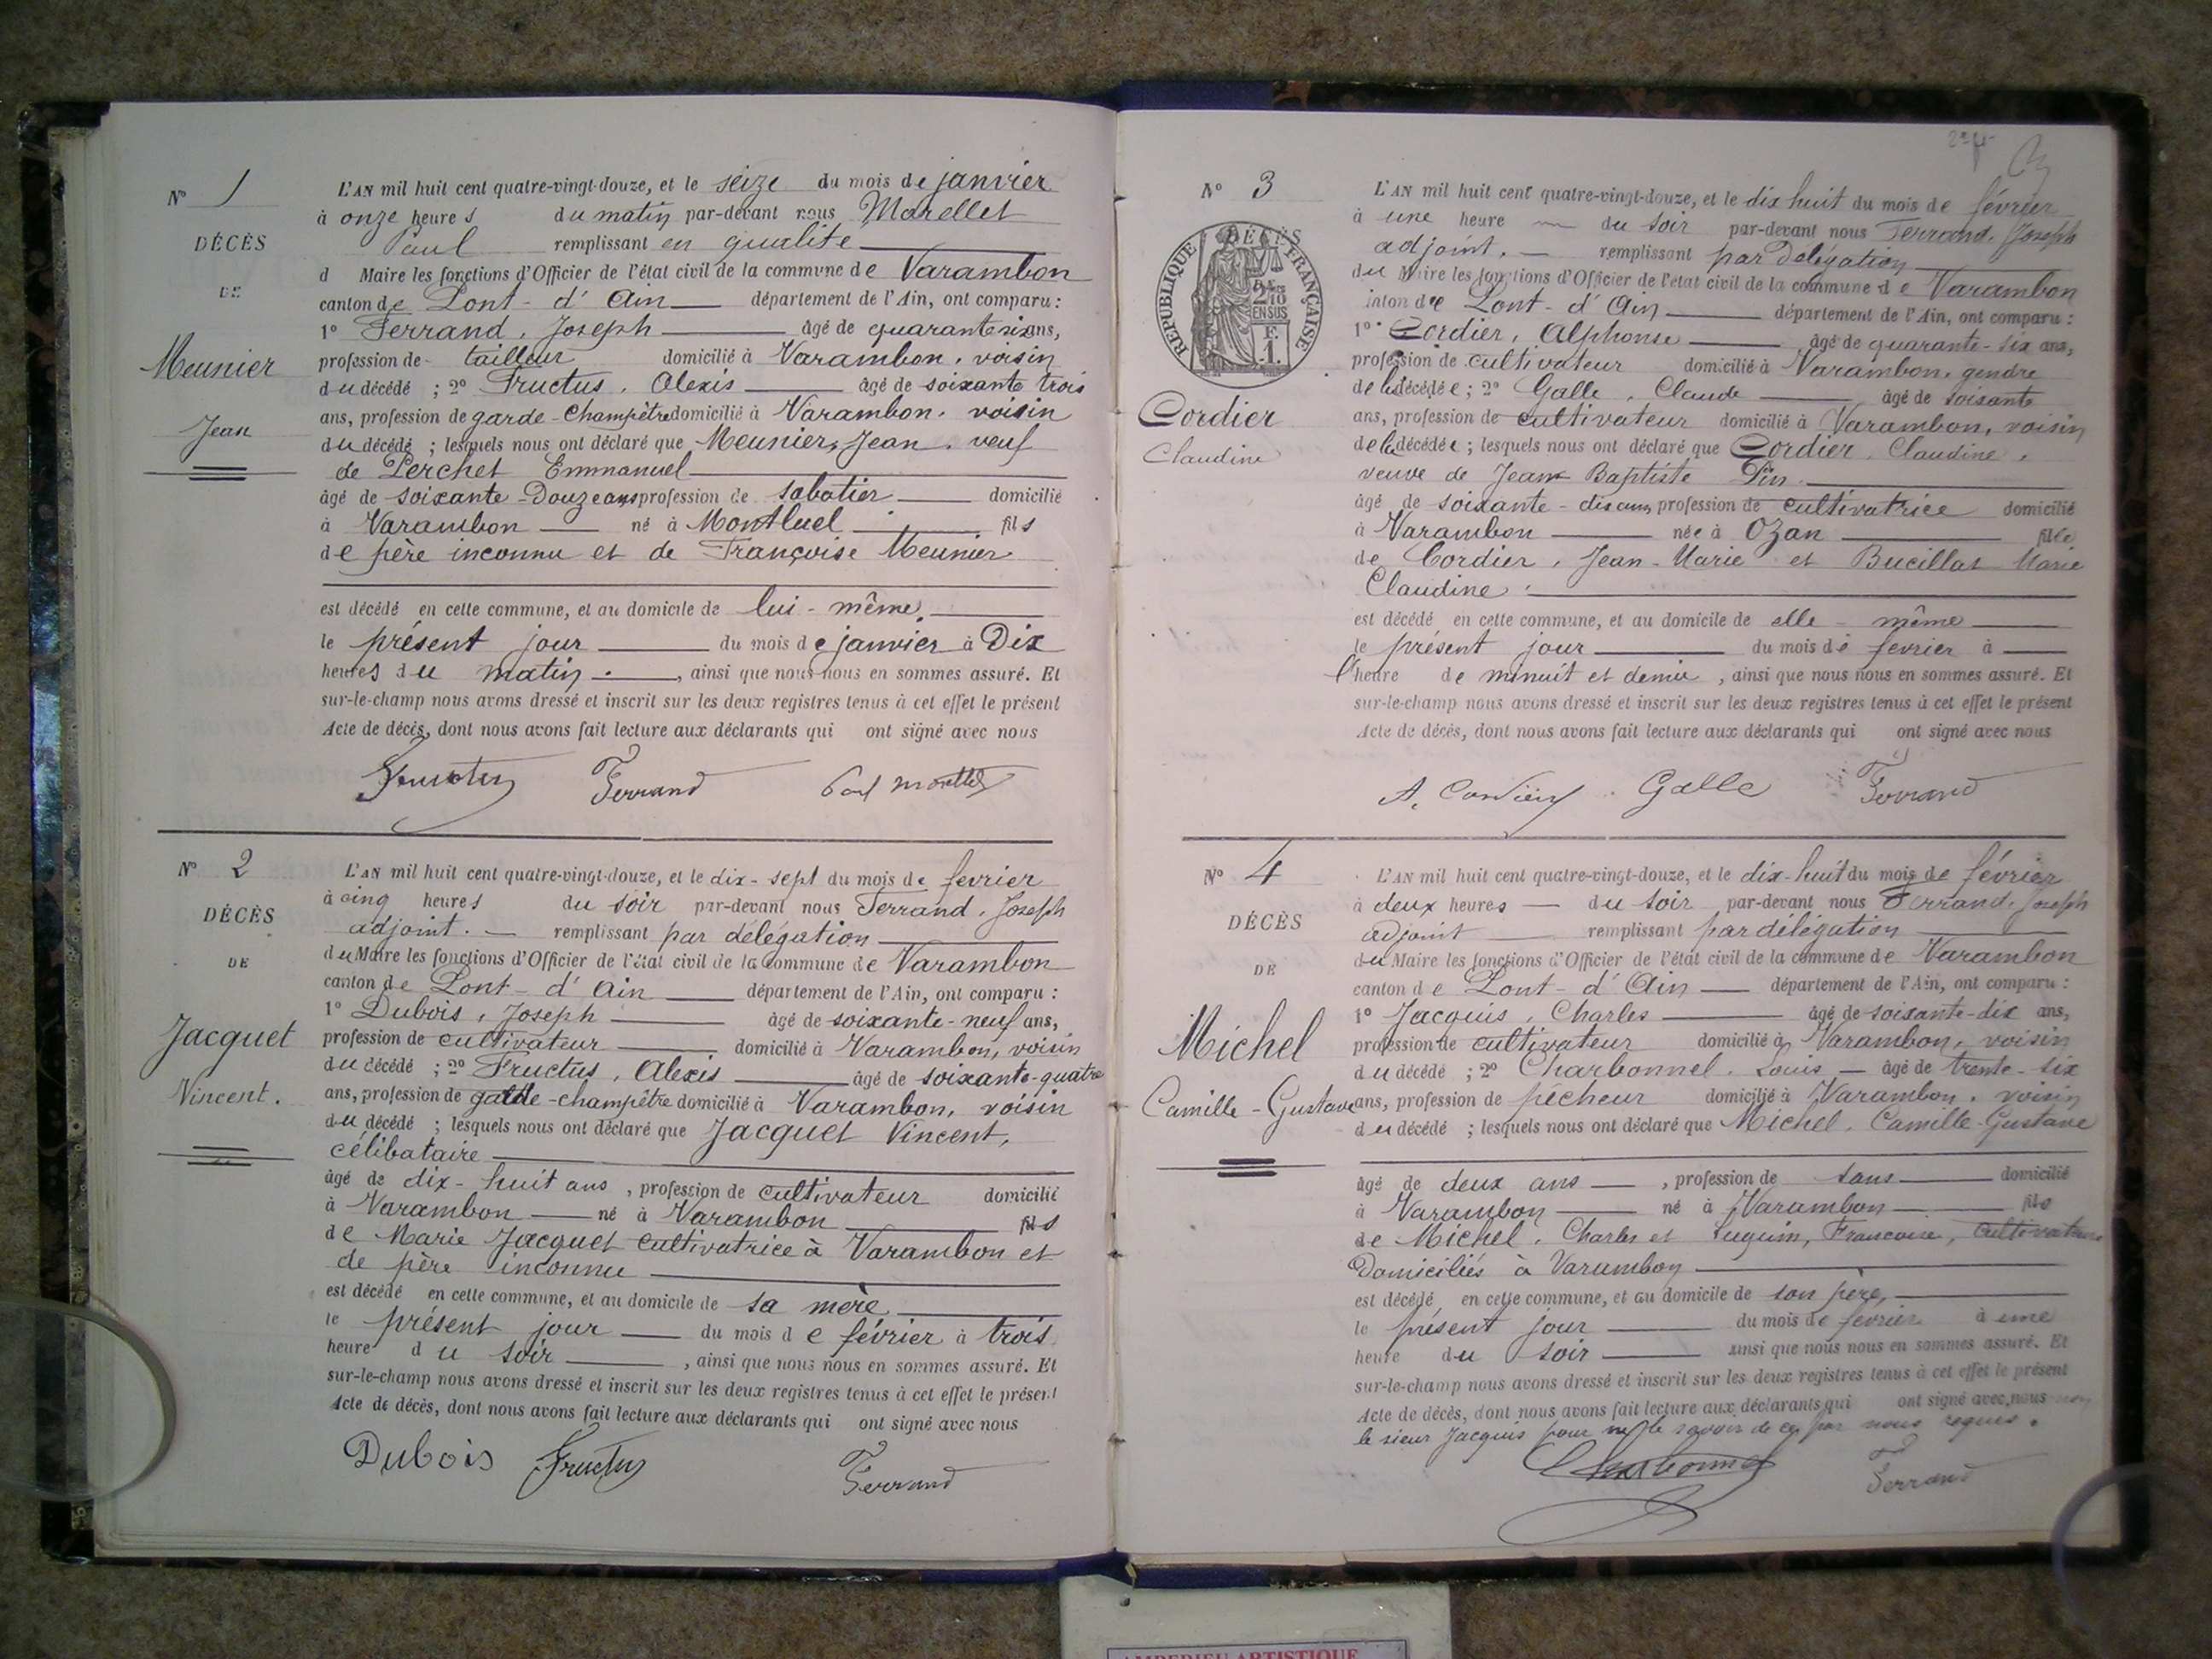 N° 1
DÉCÈS
DE
Meunier
Jean
L'AN mil huit cent quatre-vingt-douze, et le seize du mois de janvier
à onze heures du matin par-devant nous Marellet
Paul remplissant en qualité
d Maire les fonctions d'Officier de l'état civil de la commune de Varambon
canton de Pont-d'Ain département de l'Ain, ont comparu :
1° Ferrand, Joseph âgé de quarante six ans,
profession de tailleur domicilié à Varambon, voisin
du décédé ; 2° Fructus, Alexis âgé de soixante trois
ans, profession de garde-Champêtre domicilié à Varambon, voisin
du décédé ; lesquels nous ont déclaré que Meunier, Jean, veuf
de Perchet Emmanuel
âgé de soixante-Douze ans profession de sabotier domicilié
à Varambon né à Montluel fils
de père inconnu et de Françoise Meunier
est décédé en cette commune, et au domicile de lui-même,
le présent jour du mois de janvier à Dix
heures du matin, ainsi que nous nous en sommes assuré. Et
sur-le-champ nous avons dressé et inscrit sur les deux registres tenus à cet effet le présent
Acte de décès, dont nous avons fait lecture aux déclarants qui ont signé avec nous
Ferrand
N° 2
DÉCÈS
DE
Jacquet
Vincent.
L'AN mil huit cent quatre-vingt-douze, et le dix-sept du mois de fevrier
à cinq heures du soir par-devant nous Ferrand, Joseph
adjoint. remplissant par délégation
du Maire les fonctions d'Officier de l'état civil de la commune de Varambon
canton de Pont-d'Ain département de l'Ain, ont comparu :
1° Dubois, Joseph âgé de soixante-neuf ans,
profession de cultivateur domicilié à Varambon, voisin
du décédé ; 2° Fructus, Alexis âgé de soixante-quatre
ans, profession de garde-champêtre domicilié à Varambon, voisin
du décédé ; lesquels nous ont déclaré que Jacquet Vincent,
célibataire
âgé de dix-huit ans, profession de cultivateur domicilié
à Varambon né à Varambon fils
de Marie Jacquet cultivatrice à Varambon et
de père inconnu
est décédé en cette commune, et au domicile de sa mère
le présent jour du mois de février à trois
heure du soir, ainsi que nous nous en sommes assuré. Et
sur-le-champ nous avons dressé et inscrit sur les deux registres tenus à cet effet le présent
Acte de décès, dont nous avons fait lecture aux déclarants qui ont signé avec nous
Dubois Fructus Ferrand
N° 3
DÉCÈS
RÉPUBLIQUE FRANÇAISE
2/10 EN SUS
F. 1.
Cordier
Claudine
L'AN mil huit cent quatre-vingt-douze, et le dix huit du mois de février
à une heure du soir par-devant nous Ferrand, Joseph
adjoint. remplissant par Délégation
du Maire les fonctions d'Officier de l'état civil de la commune de Varambon
canton de Pont-d'Ain département de l'Ain, ont comparu :
1° Cordier, Alphonse âgé de quarante-six ans,
profession de cultivateur domicilié à Varambon, gendre
de la décédée ; 2° Galle, Claude âgé de soixante
ans, profession de cultivateur domicilié à Varambon, voisin
de la décédée ; lesquels nous ont déclaré que Cordier, Claudine,
veuve de Jean Baptiste Pin
âgé de soixante-dix ans, profession de cultivatrice domicilié
à Varambon née à Ozan fille
de Cordier, Jean-Marie et Bucillat Marie
Claudine
est décédé en cette commune, et au domicile de elle-même
le présent jour du mois de fevrier à
l'heure de minuit et demie, ainsi que nous nous en sommes assuré. Et
sur-le-champ nous avons dressé et inscrit sur les deux registres tenus à cet effet le présent
Acte de décès, dont nous avons fait lecture aux déclarants qui ont signé avec nous
A. Cordier Galle Ferrand
N° 4
DÉCÈS
DE
Michel
Camille-Gustave
L'AN mil huit cent quatre-vingt-douze, et le dix-huit du mois de février
à deux heures du soir par-devant nous Ferrand, Joseph
adjoint remplissant par délégation
du Maire les fonctions d'Officier de l'état civil de la commune de Varambon
canton de Pont-d'Ain département de l'Ain, ont comparu :
1° Jacquis, Charles âgé de soixante-dix ans,
profession de cultivateur domicilié à Varambon, voisin
du décédé ; 2° Charbonnel, Louis âgé de trente-six
ans, profession de pêcheur domicilié à Varambon, voisin
du décédé ; lesquels nous ont déclaré que Michel, Camille-Gustave
âgé de deux ans, profession de sans domicilié
à Varambon né à Varambon fils
de Michel, Charles et Luguin, Françoise, cultivateurs
Domiciliés à Varambon
est décédé en cette commune, et au domicile de son père,
le présent jour du mois de fevrier à une
heure du soir ainsi que nous nous en sommes assuré. Et
sur-le-champ nous avons dressé et inscrit sur les deux registres tenus à cet effet le présent
Acte de décès, dont nous avons fait lecture aux déclarants qui ont signé avec nous non
le sieur Jacquis pour ne le savoir de ce par nous requis.
Charbonnel Ferrand
AMBERIEU ARTISTIQUE